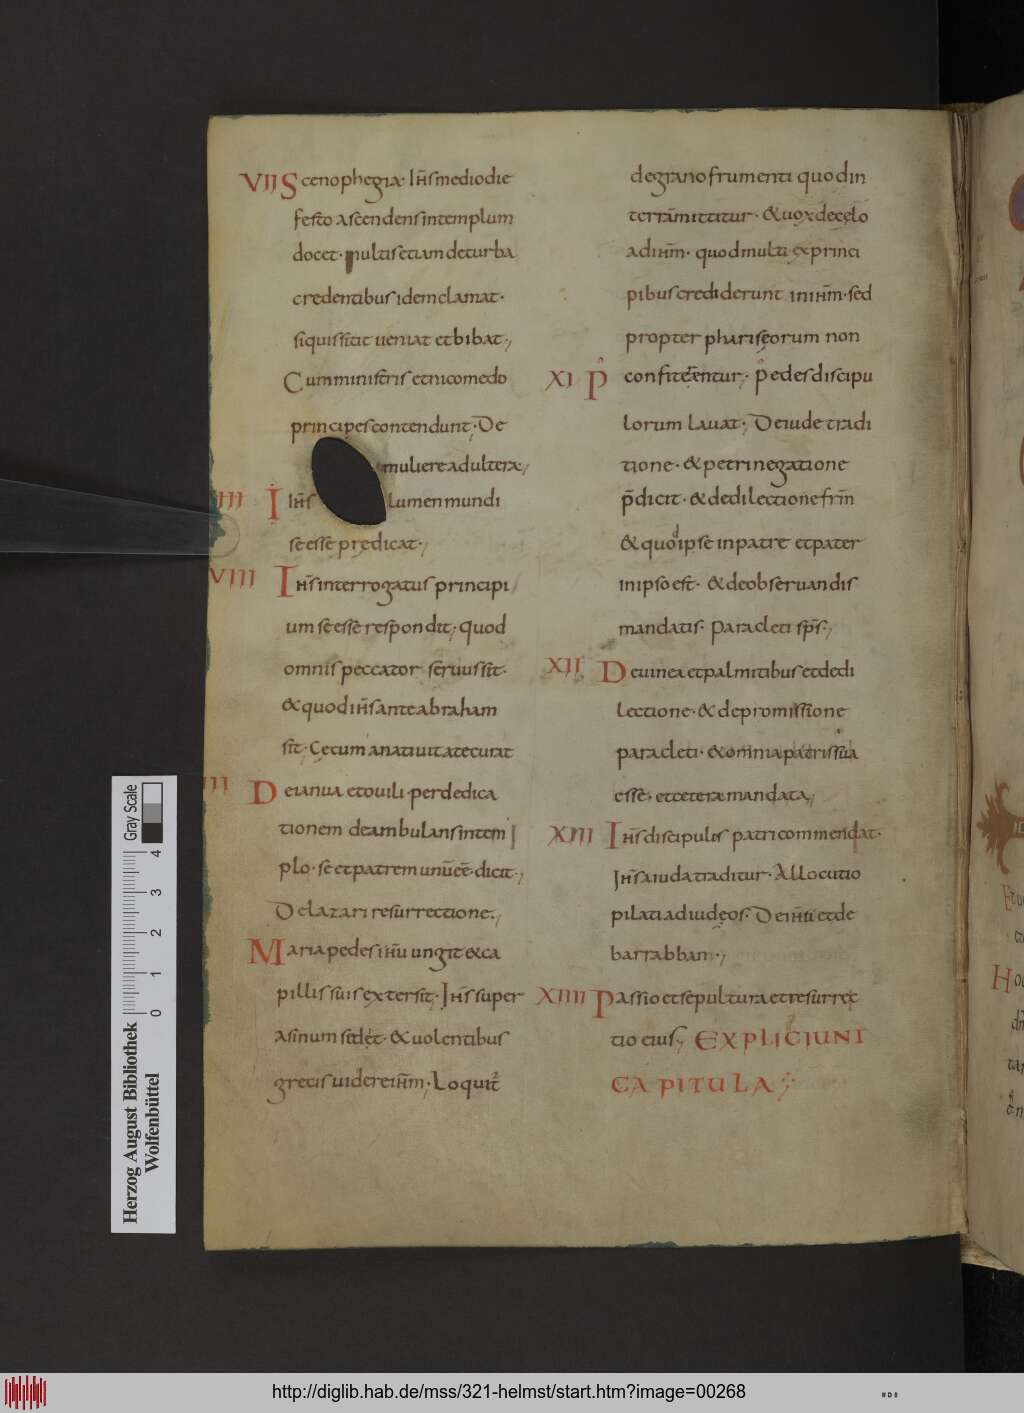 VII Scenophegia· ih̅s mediodie
festo ascendens in templum
docet· multis etiam de turba
credentibus idem clamat·
siquis sitit ueniat et bibat·,
Cum ministris et nicomedo
principes contendunt·, De
muliere adultera·,
Ih̅s lumen mundi
se esse predicat·,
VIII Ih̅s interrogatus principi
um se esse respondit·, quod
omnis peccator seruus sit·
& quod ih̅s ante abraham
sit·, Cęcum a natiuitate curat
De ianua et ouili· per dedica
tionem deambulans in tem
plo· se et patrem unu̅ e̅e̅· dicit·,
De lazari resurrectione·,
Maria pedes ih̅u ungit & ca
pillis suis extersit·, Ih̅s super
asinum sedet· & uolentibus
grecis uidere ih̅m·, Loquit̅
de grano frumenti quod in
terra̅ mittitur· & uox de cęlo
ad ih̅m· quod multi ex princi
pibus crediderunt in ih̅m· sed
propter phariseorum non
XI P confite̅rentur·, Pedes discipu
lorum lauat·, De iude tradi
tione· & petri negatione
p̅dicit· & de dilectione fr̅m
& quod ipse in patre et pater
in ipso est· & de obseruandis
mandatis· Paracleti sp̅s·,
XII De uinea et palmitibus et de di
lectione· & de promissione
paracleti· & omnia patris sua
esse· et cetera mandata·,
XIII Ih̅s discipulos patri commendat·
Ih̅s a iuda traditur· Allocutio
pilati ad iudeos· De ih̅u et de
barrabban·,
XIIII Passio et sepultura et resurrec
tio eius·, EXPLICIUNT
CAPITULA·,
Herzog August Bibliothek
Wolfenbüttel
0 1 2 3 4
Gray Scale
http://diglib.hab.de/mss/321-helmst/start.htm?image=00268